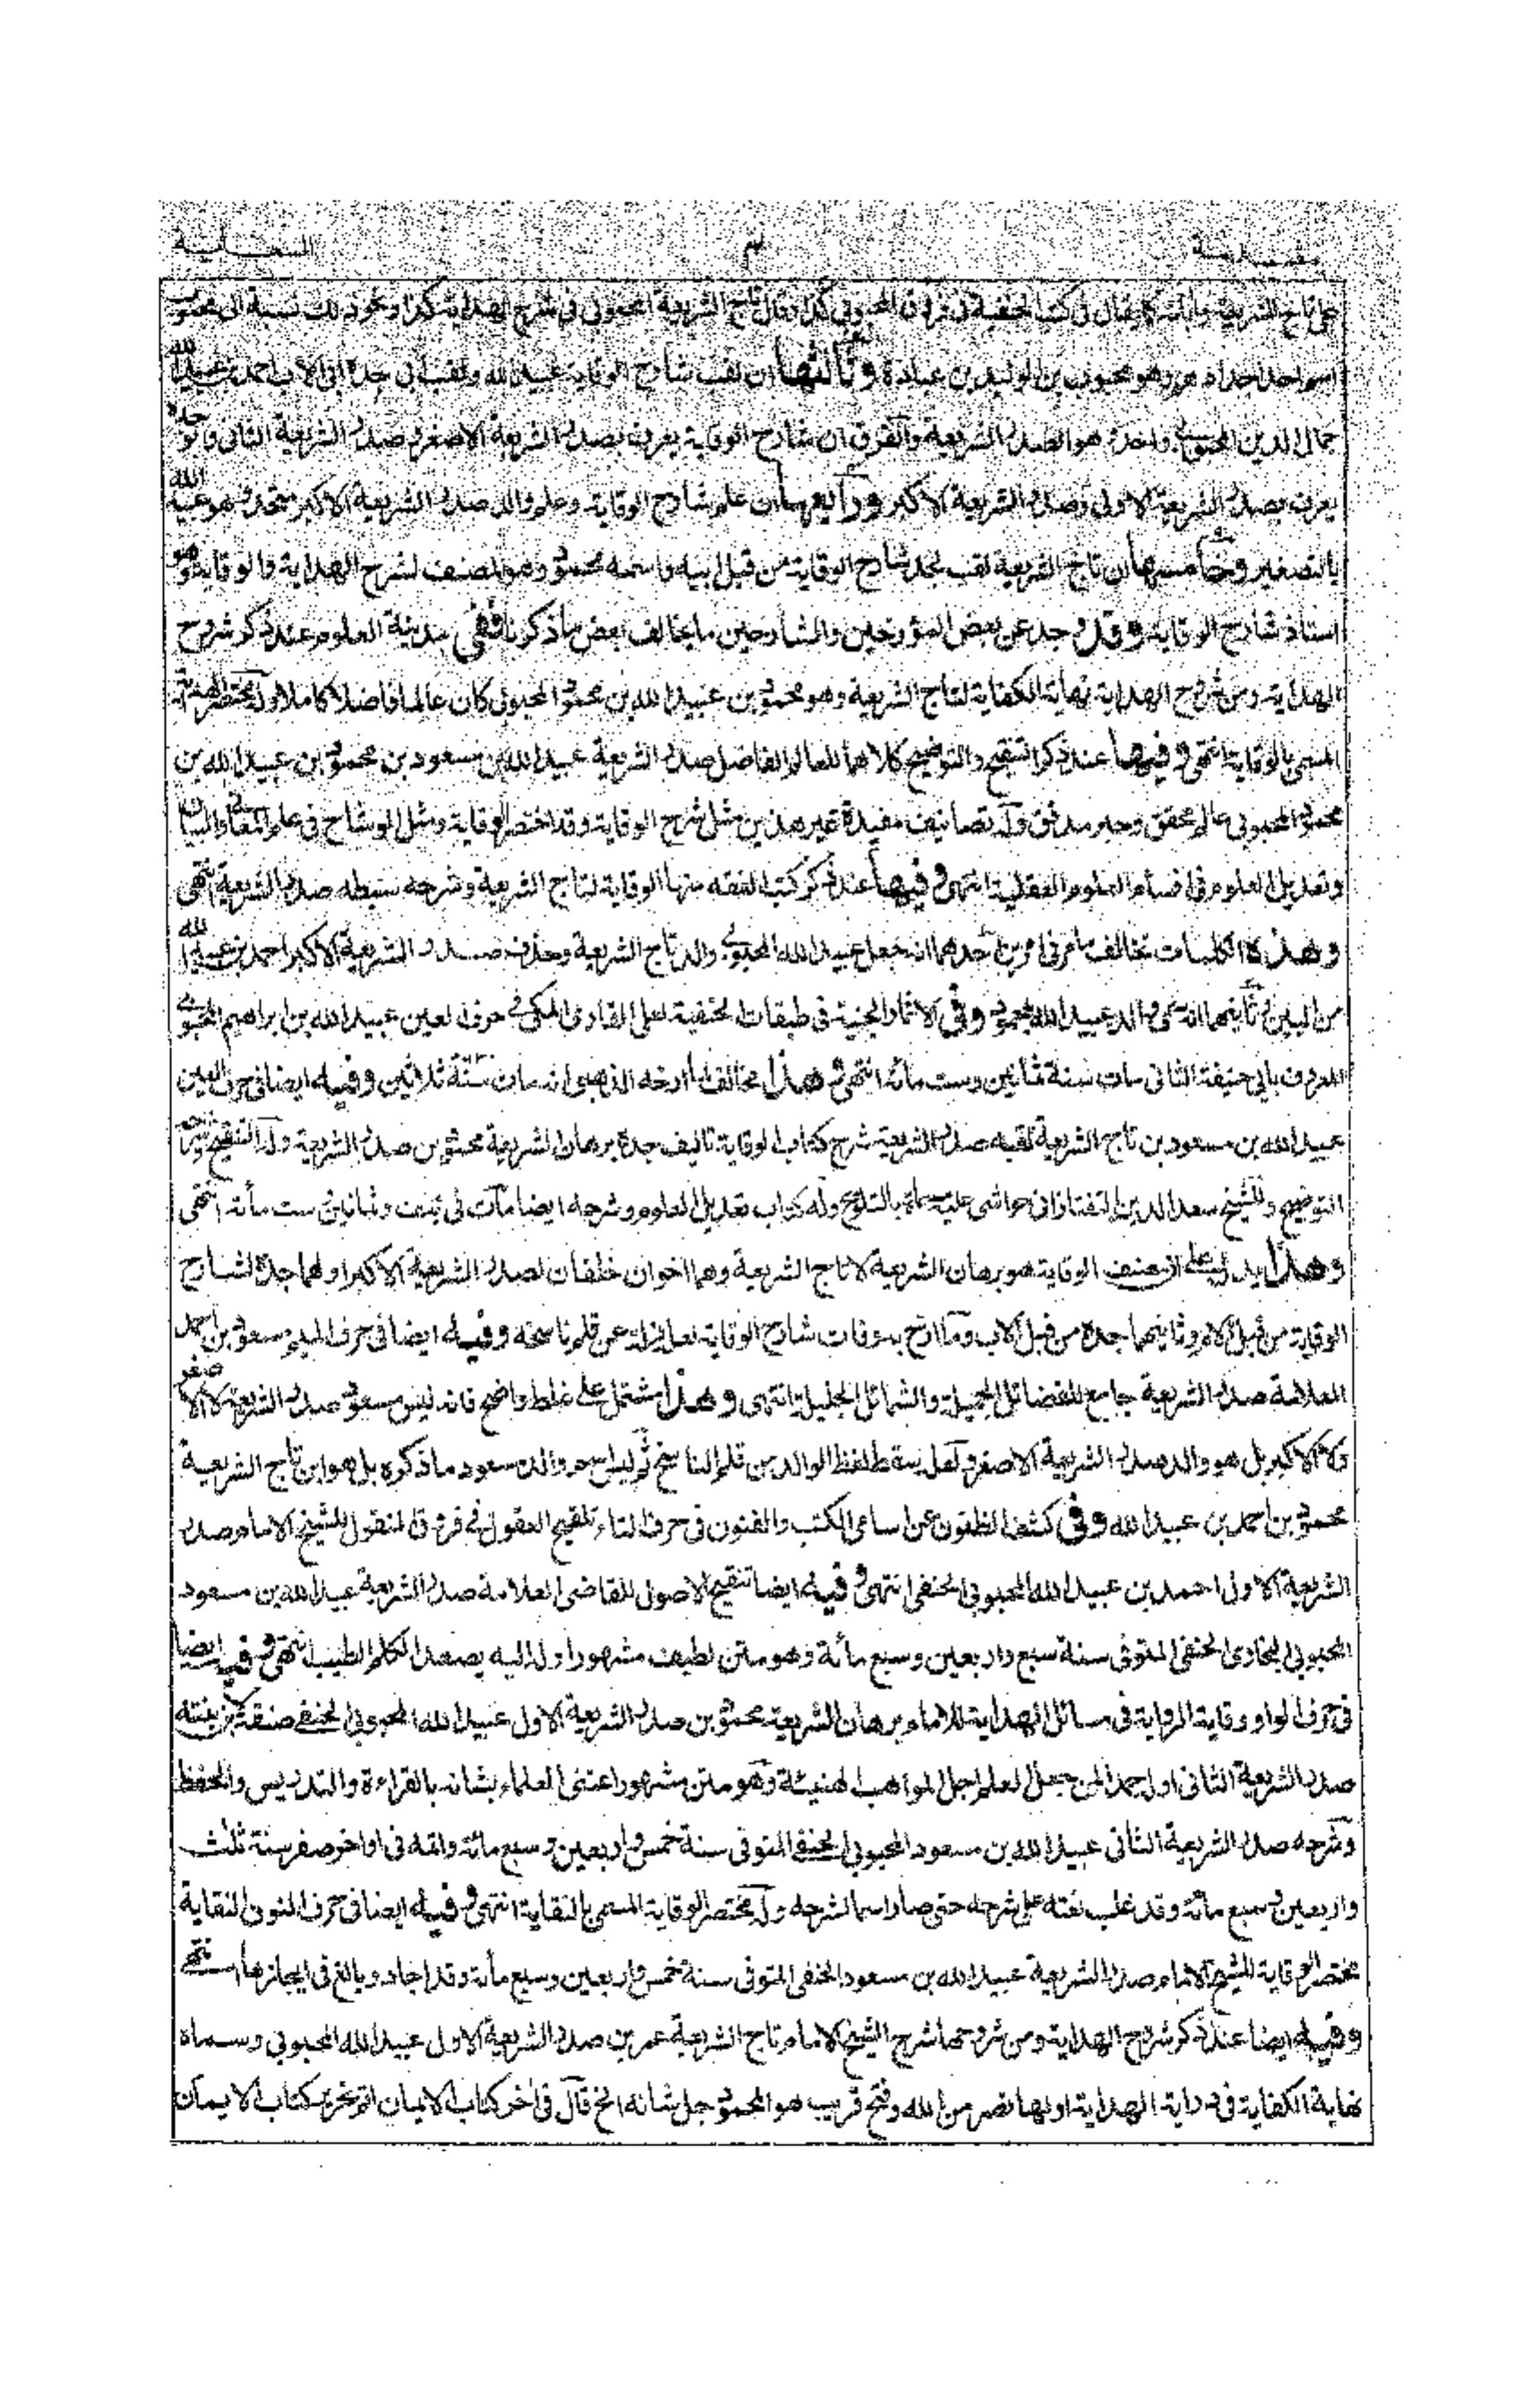 مقدمة ٣ السعاية
على تاج الشريعة وابائه كما يقال في كتب الحنفية في فروق المحبوبي كذا وقال تاج الشريعة المحبوبي في شرح الهداية كذا ونحو ذلك نسبة الى محبوب
اسم احد اجداد هم وهو محبوب بن الوليد بن عبادة وثالثها ان لقب شارح الوقاية عبيد الله ولقب ابي جدة ابي الاب احمد بن عبيد الله
جمال الدين المحبوبي واحد هو الصدر الشريعة والفرق ان شارح الوقاية يعرف بصدر الشريعة الاصغر وصدر الشريعة الثاني وابو جده
يعرف بصدر الشريعة الاولى وصدر الشريعة الاكبر ورابعها ان علم شارح الوقاية وعلم والد صدر الشريعة الاكبر متحد وهو عبيد الله
بالتصغير وخامسها ان تاج الشريعة لقب لجد شارح الوقاية من قبل ابيه واسمه محمود وهو المصنف لشرح الهداية والوقاية وهو
استاذ شارح الوقاية وقد وجد عن بعض المؤرخين والشارحين ما يخالف بعض ما ذكرنا ففي مدينة العلوم عند ذكر شروح
الهداية ومن شروح الهداية نهاية الكفاية لتاج الشريعة وهو محمود بن عبيد الله بن محمود المحبوبي كان عالما فاضلا كاملا وله مختصر الهداية
المسمى بالوقاية انتهى وفيها عند ذكر التنقيح والتوضيح كلاهما للعالم الفاضل صدر الشريعة عبيد الله بن مسعود بن محمود بن عبيد الله بن
محمود المحبوبي عالم محقق وحبر مدقق وله تصانيف مفيدة غير هذين مثل شرح الوقاية وقد اختصر الوقاية ومثل الوشاح في علم المعاني والبيان
وتعديل العلوم في اقسام العلوم العقلية انتهى وفيها عند ذكر كتب الفقه منها الوقاية لتاج الشريعة وشرحه سبطه صدر الشريعة انتهى
وهذه الكلمات تخالف ما مر في امرين احدهما انه جعل عبيد الله المحبوبي والد تاج الشريعة وحذف صدر الشريعة الاكبر احمد بن عبيد الله
من البين وثانيهما انه سمى والد عبيد الله بمحمود وفي الاثمار الجنية في طبقات الحنفية لعلي القاري المكي في حرف العين عبيد الله بن ابراهيم المحبوبي
المعروف بابي حنيفة الثاني مات سنة ثمانين وست مائة انتهى وهذا مخالف لما ارخه الذهبي انه مات سنة ثلاثين وفيه ايضا في حرف العين
عبيد الله بن مسعود بن تاج الشريعة لقبه صدر الشريعة شرح كتاب الوقاية تاليف جده برهان الشريعة محمود بن صدر الشريعة وله التنقيح وشرحه
التوضيح وللشيخ سعد الدين التفتازاني حواشي عليه سماه بالتلويح وله كتاب تعديل العلوم وشرحه ايضا مات في نيف وثمانين وست مأئة انتهى
وهذا يدل على ان مصنف الوقاية هو برهان الشريعة لا تاج الشريعة وهما اخوان خلفان لصدر الشريعة الاكبر اولهما جد لشارح
الوقاية من قبل الام وثانيهما جده من قبل الاب وما ارخ به وفات شارح الوقاية لعله زلة عن قلم ناسخه وفيه ايضا في حرف الميم مسعود بن احمد
العلامة صدر الشريعة جامع للفضائل الجميلة والشمائل الجليلة انتهى وهذا مشتمل على غلط واضح فانه ليس مسعود صدر الشريعة لا الاصغر
ولا الاكبر بل هو والد صدر الشريعة الاصغر ولعل سقط لفظ الوالد من قلم الناسخ ثم ليس اسم والد مسعود ما ذكره بل هو ابن تاج الشريعة
محمود بن احمد بن عبيد الله وفي كشف الظنون عن اسامي الكتب والفنون في حرف التاء تلقيح العقول في فروق المنقول للشيخ الامام صدر
الشريعة الاول احمد بن عبيد الله المحبوبي الحنفي انتهى وفيه ايضا تنقيح الاصول للقاضي العلامة صدر الشريعة عبيد الله بن مسعود
المحبوبي البخاري الحنفي المتوفى سنة سبع واربعين وسبع مائة وهو متن لطيف مشهور اوله اليه يصعد الكلم الطيب انتهى وفيه ايضا
في حرف الواو وقاية الرواية في مسائل الهداية للامام برهان الشريعة محمود بن صدر الشريعة الاول عبيد الله المحبوبي الحنفي صنفه لابن بنته
صدر الشريعة الثاني اوله احمد المن جعل العلم اجل المواهب الهنيئة وهو متن مشهور اعتنى العلماء بشانه بالقراءة والتدريس والحفظ
وشرحه صدر الشريعة الثاني عبيد الله بن مسعود المحبوبي الحنفي المتوفى سنة خمس واربعين وسبع مائة والفه في اواخر صفر سنة ثلث
واربعين وسبع مائة وقد غلب نعته على شرحه حتى صار اسما لشرحه وله مختصر الوقاية المسمى بالنقاية انتهى وفيه ايضا في حرف النون النقاية
مختصر الوقاية للشيخ الامام صدر الشريعة عبيد الله بن مسعود الحنفي المتوفى سنة خمس واربعين وسبع مأئة وقد اجاد وبالغ في ايجازها انتهى
وفيه ايضا عند ذكر شروح الهداية ومن شروحها شرح الشيخ الامام تاج الشريعة عمر بن صدر الشريعة الاول عبيد الله المحبوبي وسماه
نهاية الكفاية في دراية الهداية اولها نصر من الله وفتح قريب هو المحمود جل شانه الخ قال في اخر كتاب الايمان اتم تحرير كتاب الايمان